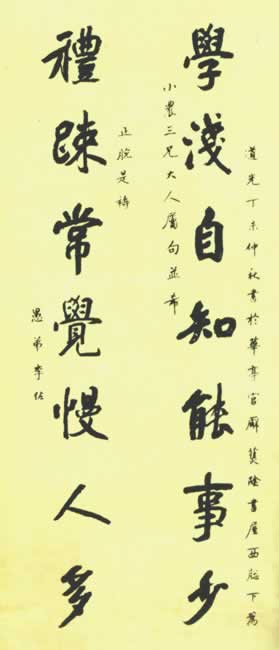 道光丁未仲秋書於華亭官廨隂書屋西牕下為
學淺自知能事少
小農三兄大人屬句並希
正腕是禱
禮踈常覺慢人多
愚弟李